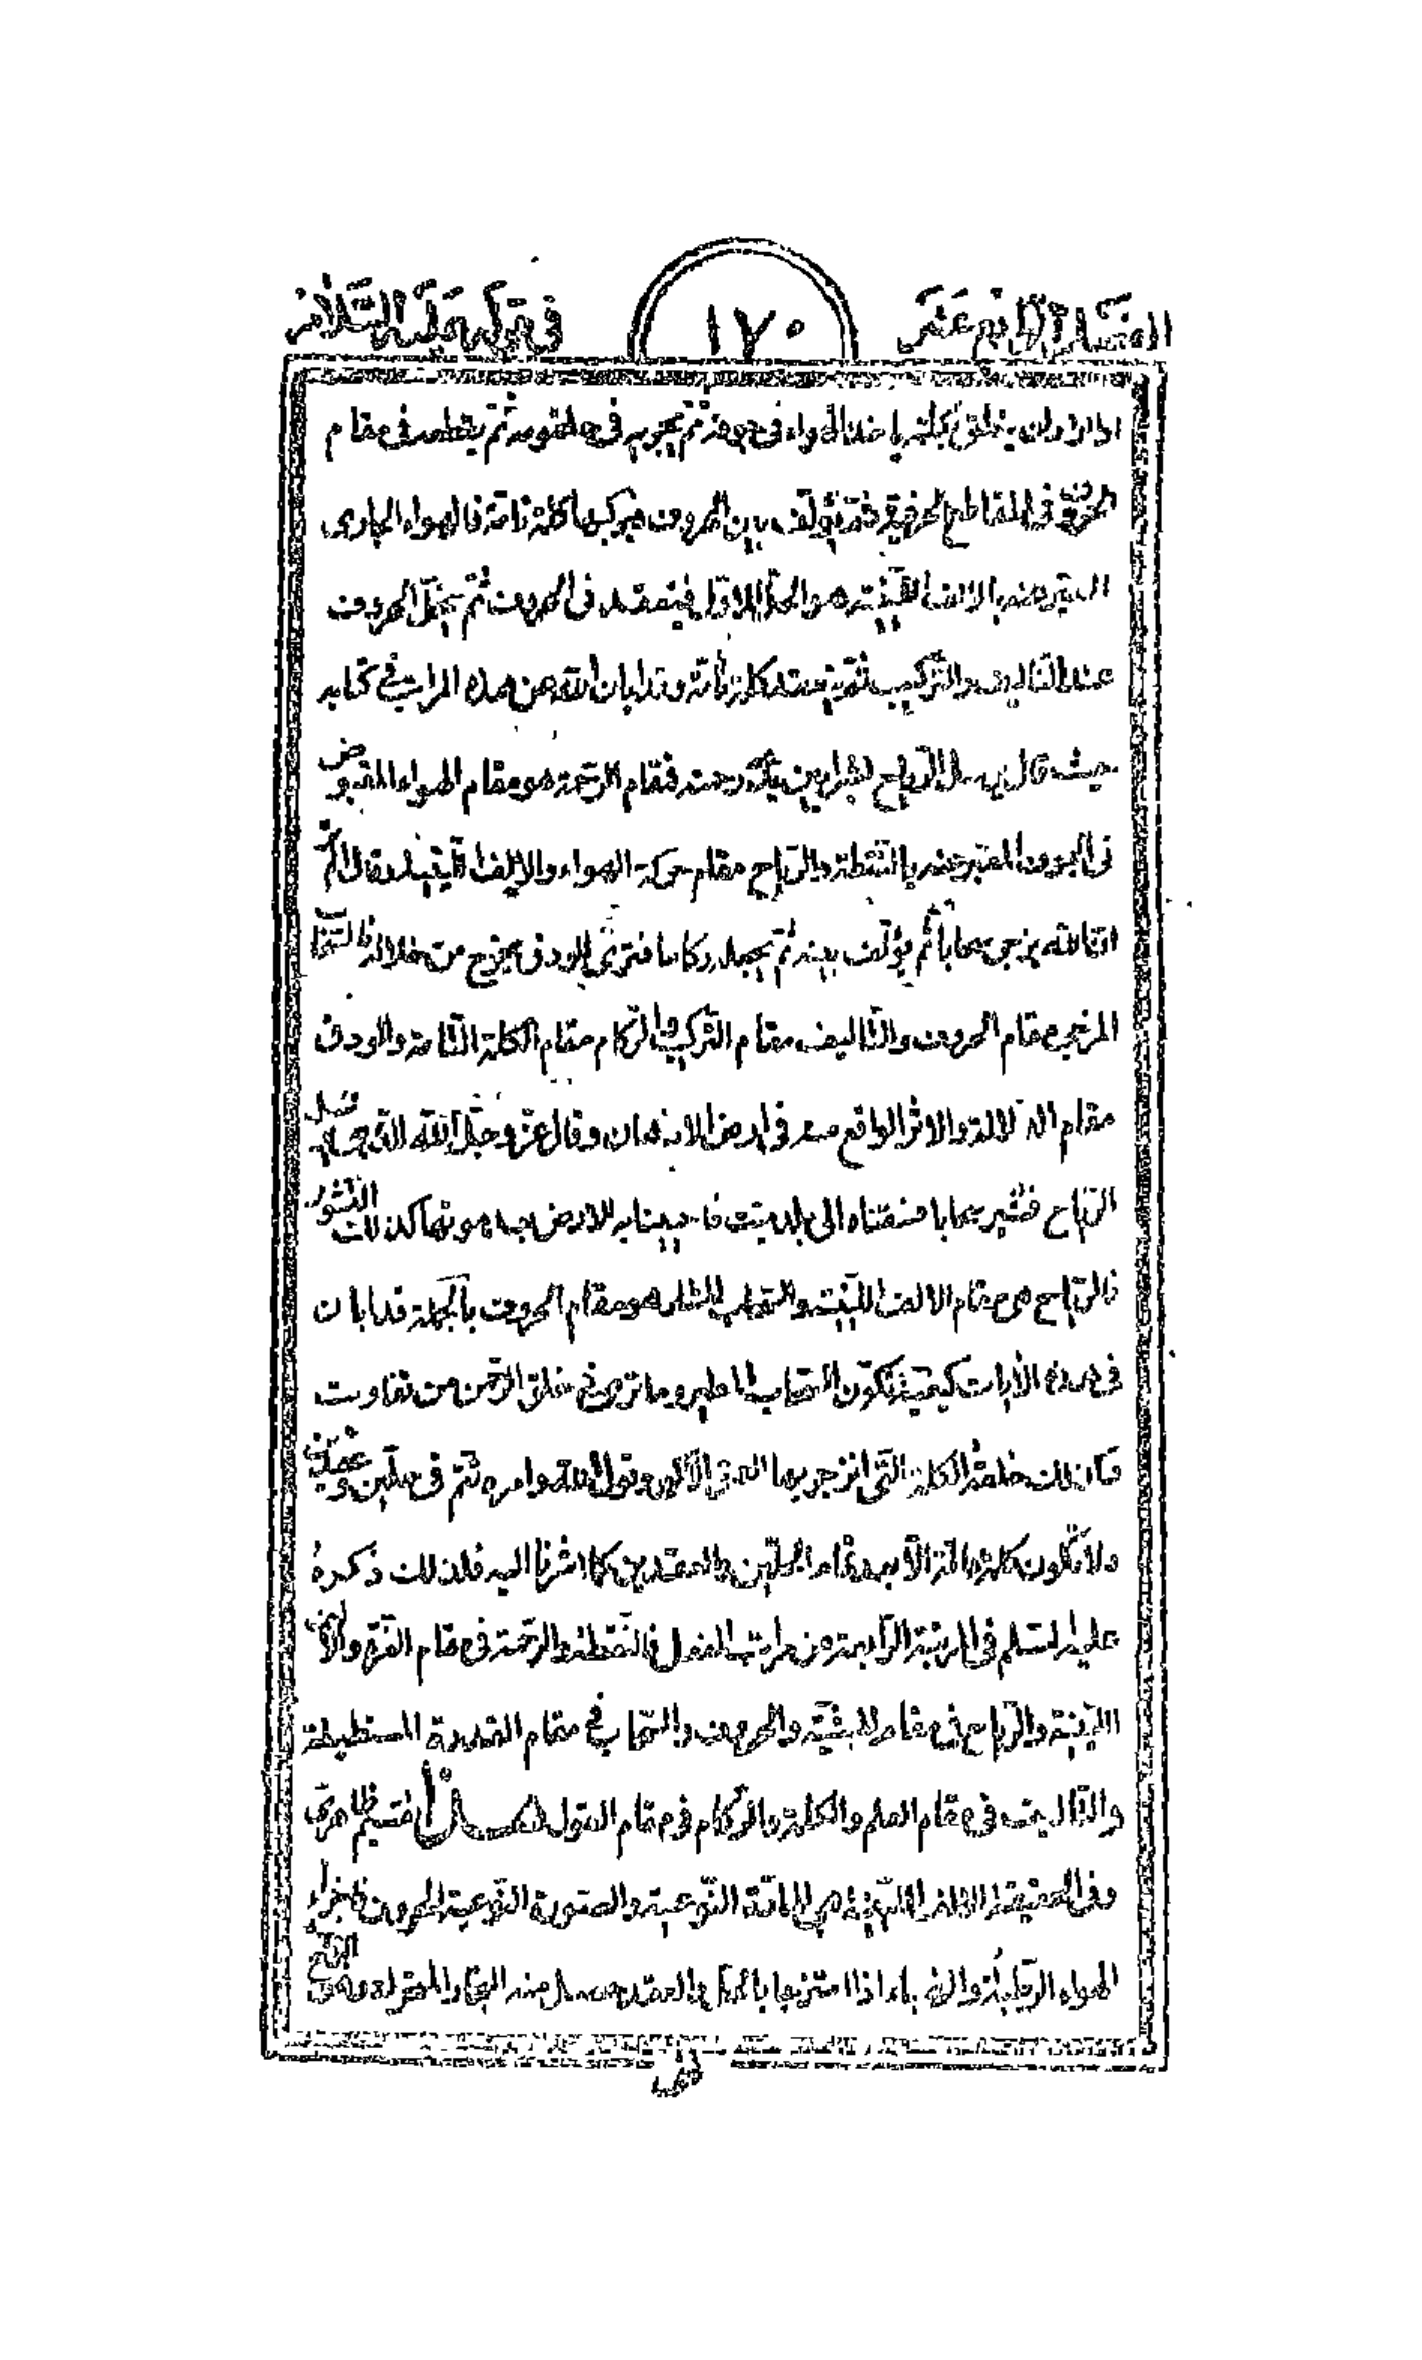 الفصل الثاني عشر ١٧٠ في قوله عليه السلام
اذا اراد ان ينطق بكلمة ياخذ الهواء في جوفه ثم يجريه في حلقومه ثم يقطعه في مقام
المخرج في المقاطع الحرفية ثم يؤلف بين الحروف فيركبها كلمة تامة فالهواء الجاري
المعبر عنه بالالف اللينية هو الحل الاول فينعقد في الحروف ثم ينحل الحروف
عند التاليف والتركيب ثم ينعقد كلمة تامة وقد ابان الله عن هذه المراتب في كتابه
حيث قال يرسل الرياح بشرا بين يدي رحمته فمقام الرحمة هو مقام الهواء المقبوض
في الجوف المعبر عنه بالنقطة والرياح مقام حركة الهواء والالف اللينية وقال الم تر
ان الله يزجي سحابا ثم يؤلف بينه ثم يجعله ركاما فترى الودق يخرج من خلاله فالسحاب
المزجى مقام الحروف والتاليف مقام التركيب والركام مقام الكلمة التامة والودق
مقام الدلالة والاثر الواقع منه في ارض الاذهان وقال عز وجل الله الذي يرسل
الرياح فتثير سحابا فسقناه الى بلد ميت فاحيينا به الارض بعد موتها كذلك النشور
فالرياح هي مقام الالف اللينية والسحاب المثار هو مقام الحروف بالجملة قد ابان
في هذه الايات كيفية تكون السحاب الماطر وما ترى في خلق الرحمن من تفاوت
فكذلك خلقة الكلمة التي انزجر بها العمق الاكبر وقول الله وامره تتم في حلين وعقدين
ولا تكون كلمة تامة الا بعد تمام الحلين والعقدين كما اشرنا اليه فلذلك ذكره
عليه السلم في المرتبة الرابعة من مراتب الفعل فالنقطة والرحمة في مقام القرع والالف
اللينية والرياح في مقام المشية والحروف والسحاب في مقام القدرة المستطيلة
والتاليف في مقام العلم والكلمة والركام في مقام القول هذا تقسيم ظاهري
وفي الحقيقة الالف اللينية هي المادة النوعية والصورة النوعية الحروف فاجزاء
الهواء الرطبة والهباء اذا امتزجا بالحل والعقد حصل منه البخار المتراكم